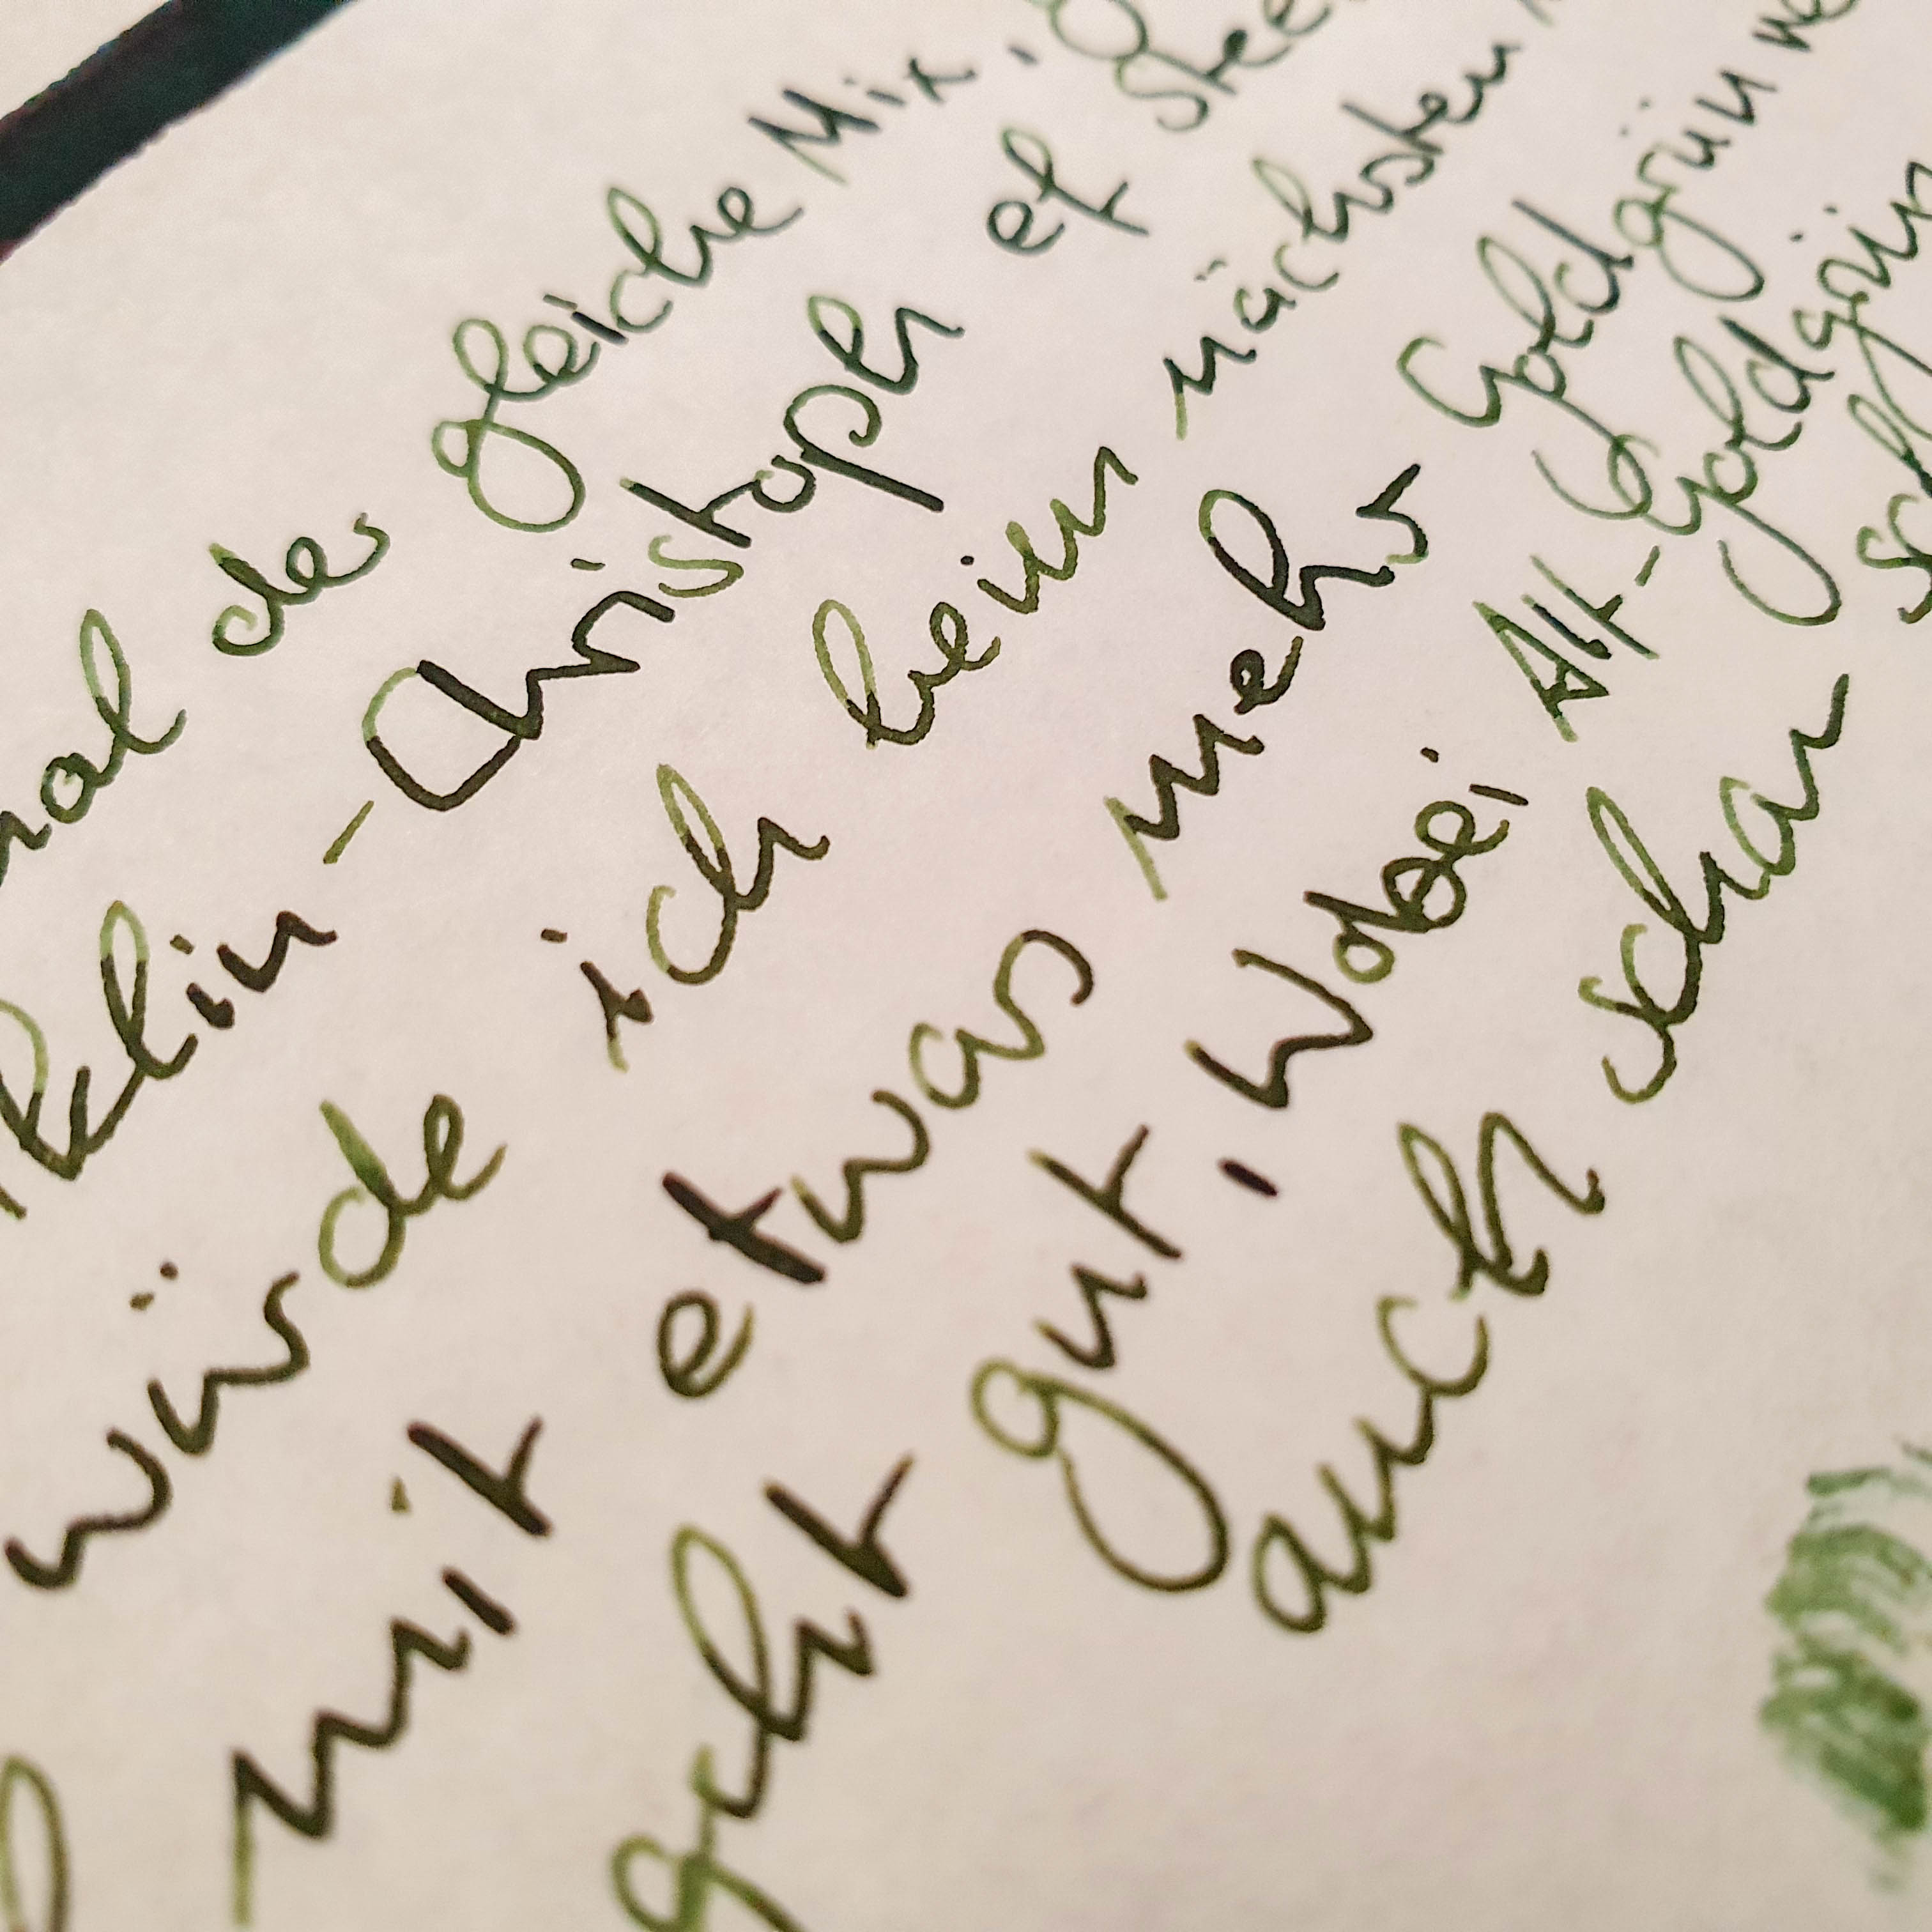 mal der gleiche Mix,
klin-Christoph ef Stee
würde ich beim nächsten
mit etwas mehr Goldgrün
geht gut, Wobei Alt-Goldgrün
auch schon